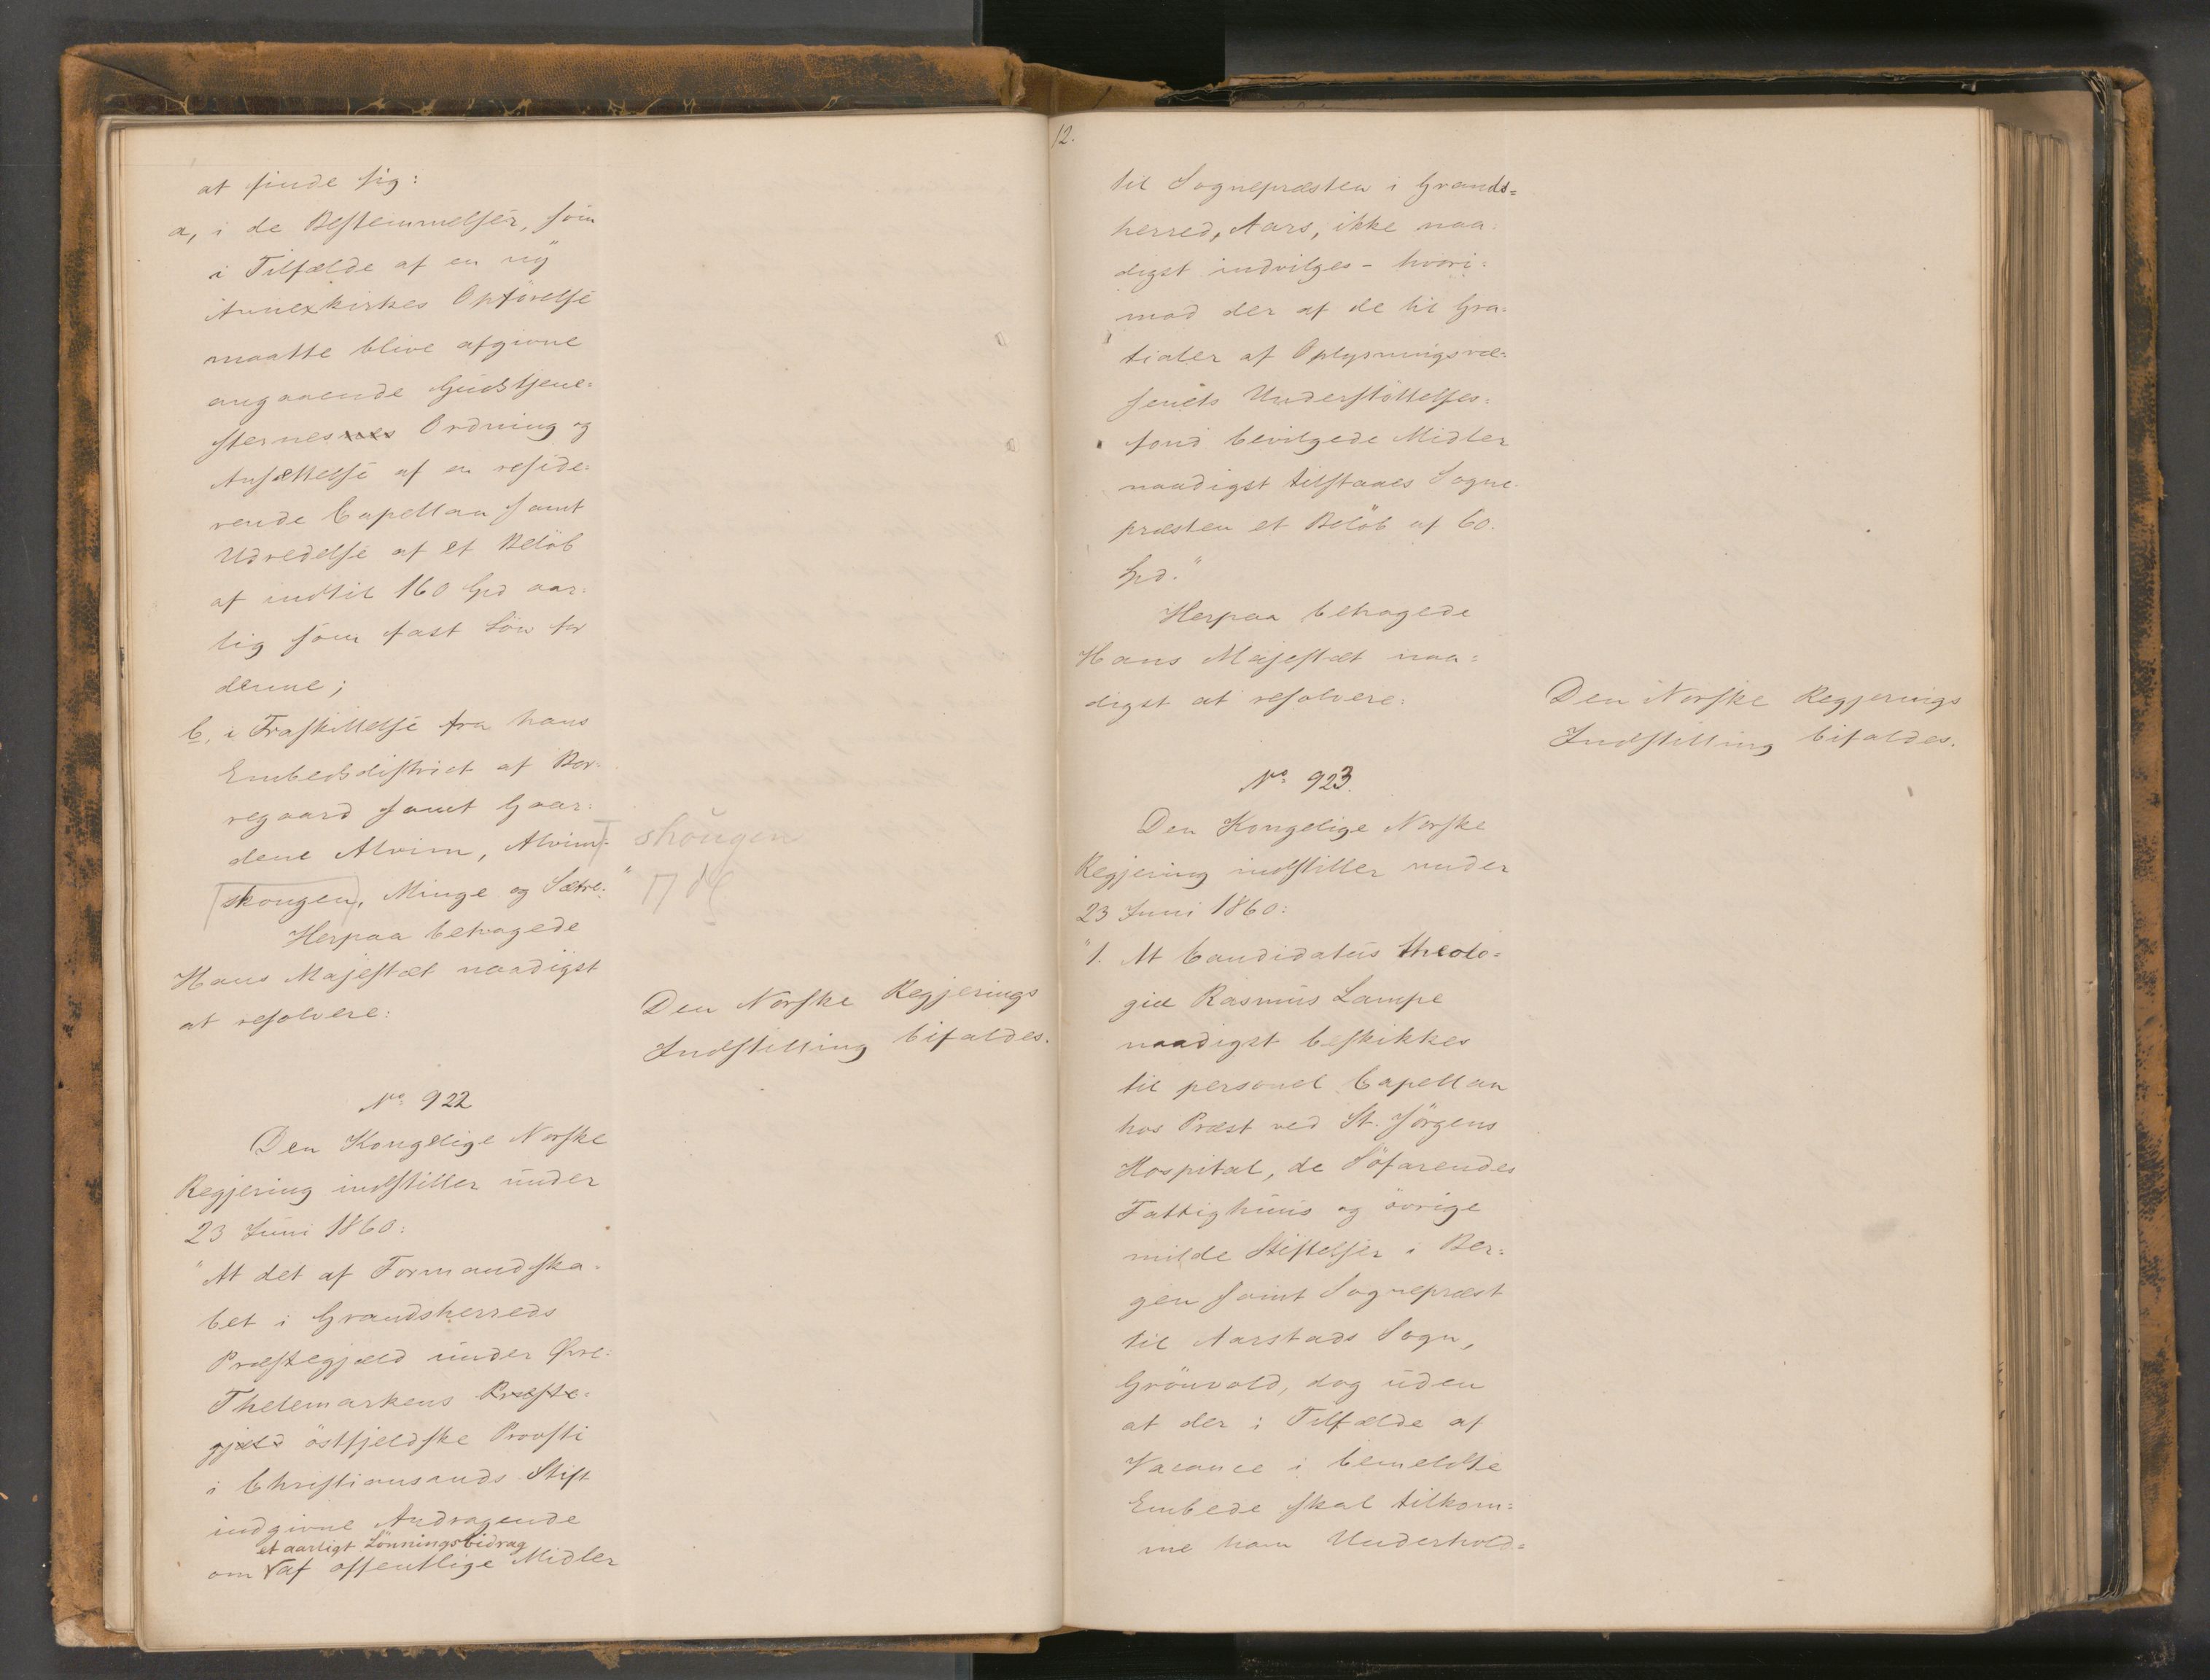 at finde sig:
a, i de Bestemmelser, som
i Tilfælde af en ny
Annexkirkes Opförelse
maatte blive afgivne
angaaende Gudstjene-
sternes Ordning og
Ansættelse af en reside-
rende Capellan samt
Udredelse af et Belöb
af indtil 160 Spd aar-
lig som fast Lön for
denne;
b, i Fraskillelse fra hans
Embedsdistrict af Bor-
regaard samt Gaar-
dene Alvim, Alvim-
skougen, Minge og Sætre."
skougen
Herpaa behagede
Hans Majestæt naadigst
at resolvere:
Den Norske Regjerings
Indstilling bifaldes.
No 922
Den Kongelige Norske
Regjering indstiller under
23 Juni 1860:
"At det af Formandska-
bet i Grandsherreds
Præstegjæld under Övre-
Thelemarkens Præste-
gjæld östfjeldske Provsti
i Christiansands Stift
indgivne Andragende
et aarligt Lönningsbidrag
om af offentlige Midler
12.
til Sognepræsten i Grands-
herred, Aars, ikke naa-
digst indvilges - hvori-
mod der af de til Gra-
tialer af Oplysningsvæ-
senets Understöttelses-
fond bevilgede Midler
naadigst tilstaaes Sogne-
præsten et Belöb af 60
Spd."
Herpaa behagede
Hans Majestæt naa-
digst at resolvere:
Den Norske Regjerings
Indstilling bifaldes.
No 923.
Den Kongelige Norske
Regjering indstiller under
23 Juni 1860:
"1. At Candidatus theolo-
giæ Rasmus Lampe
naadigst beskikkes
til personel Capellan
hos Præst ved St. Jörgens
Hospital, de Söfarendes
Fattighuus og övrige
milde Stiftelser i Ber-
gen samt Sognepræst
til Aarstads Sogn,
Grönvold, dog uden
at der i Tilfælde af
Vacance i bemeldte
Embede skal tilkom-
me ham Underhold-